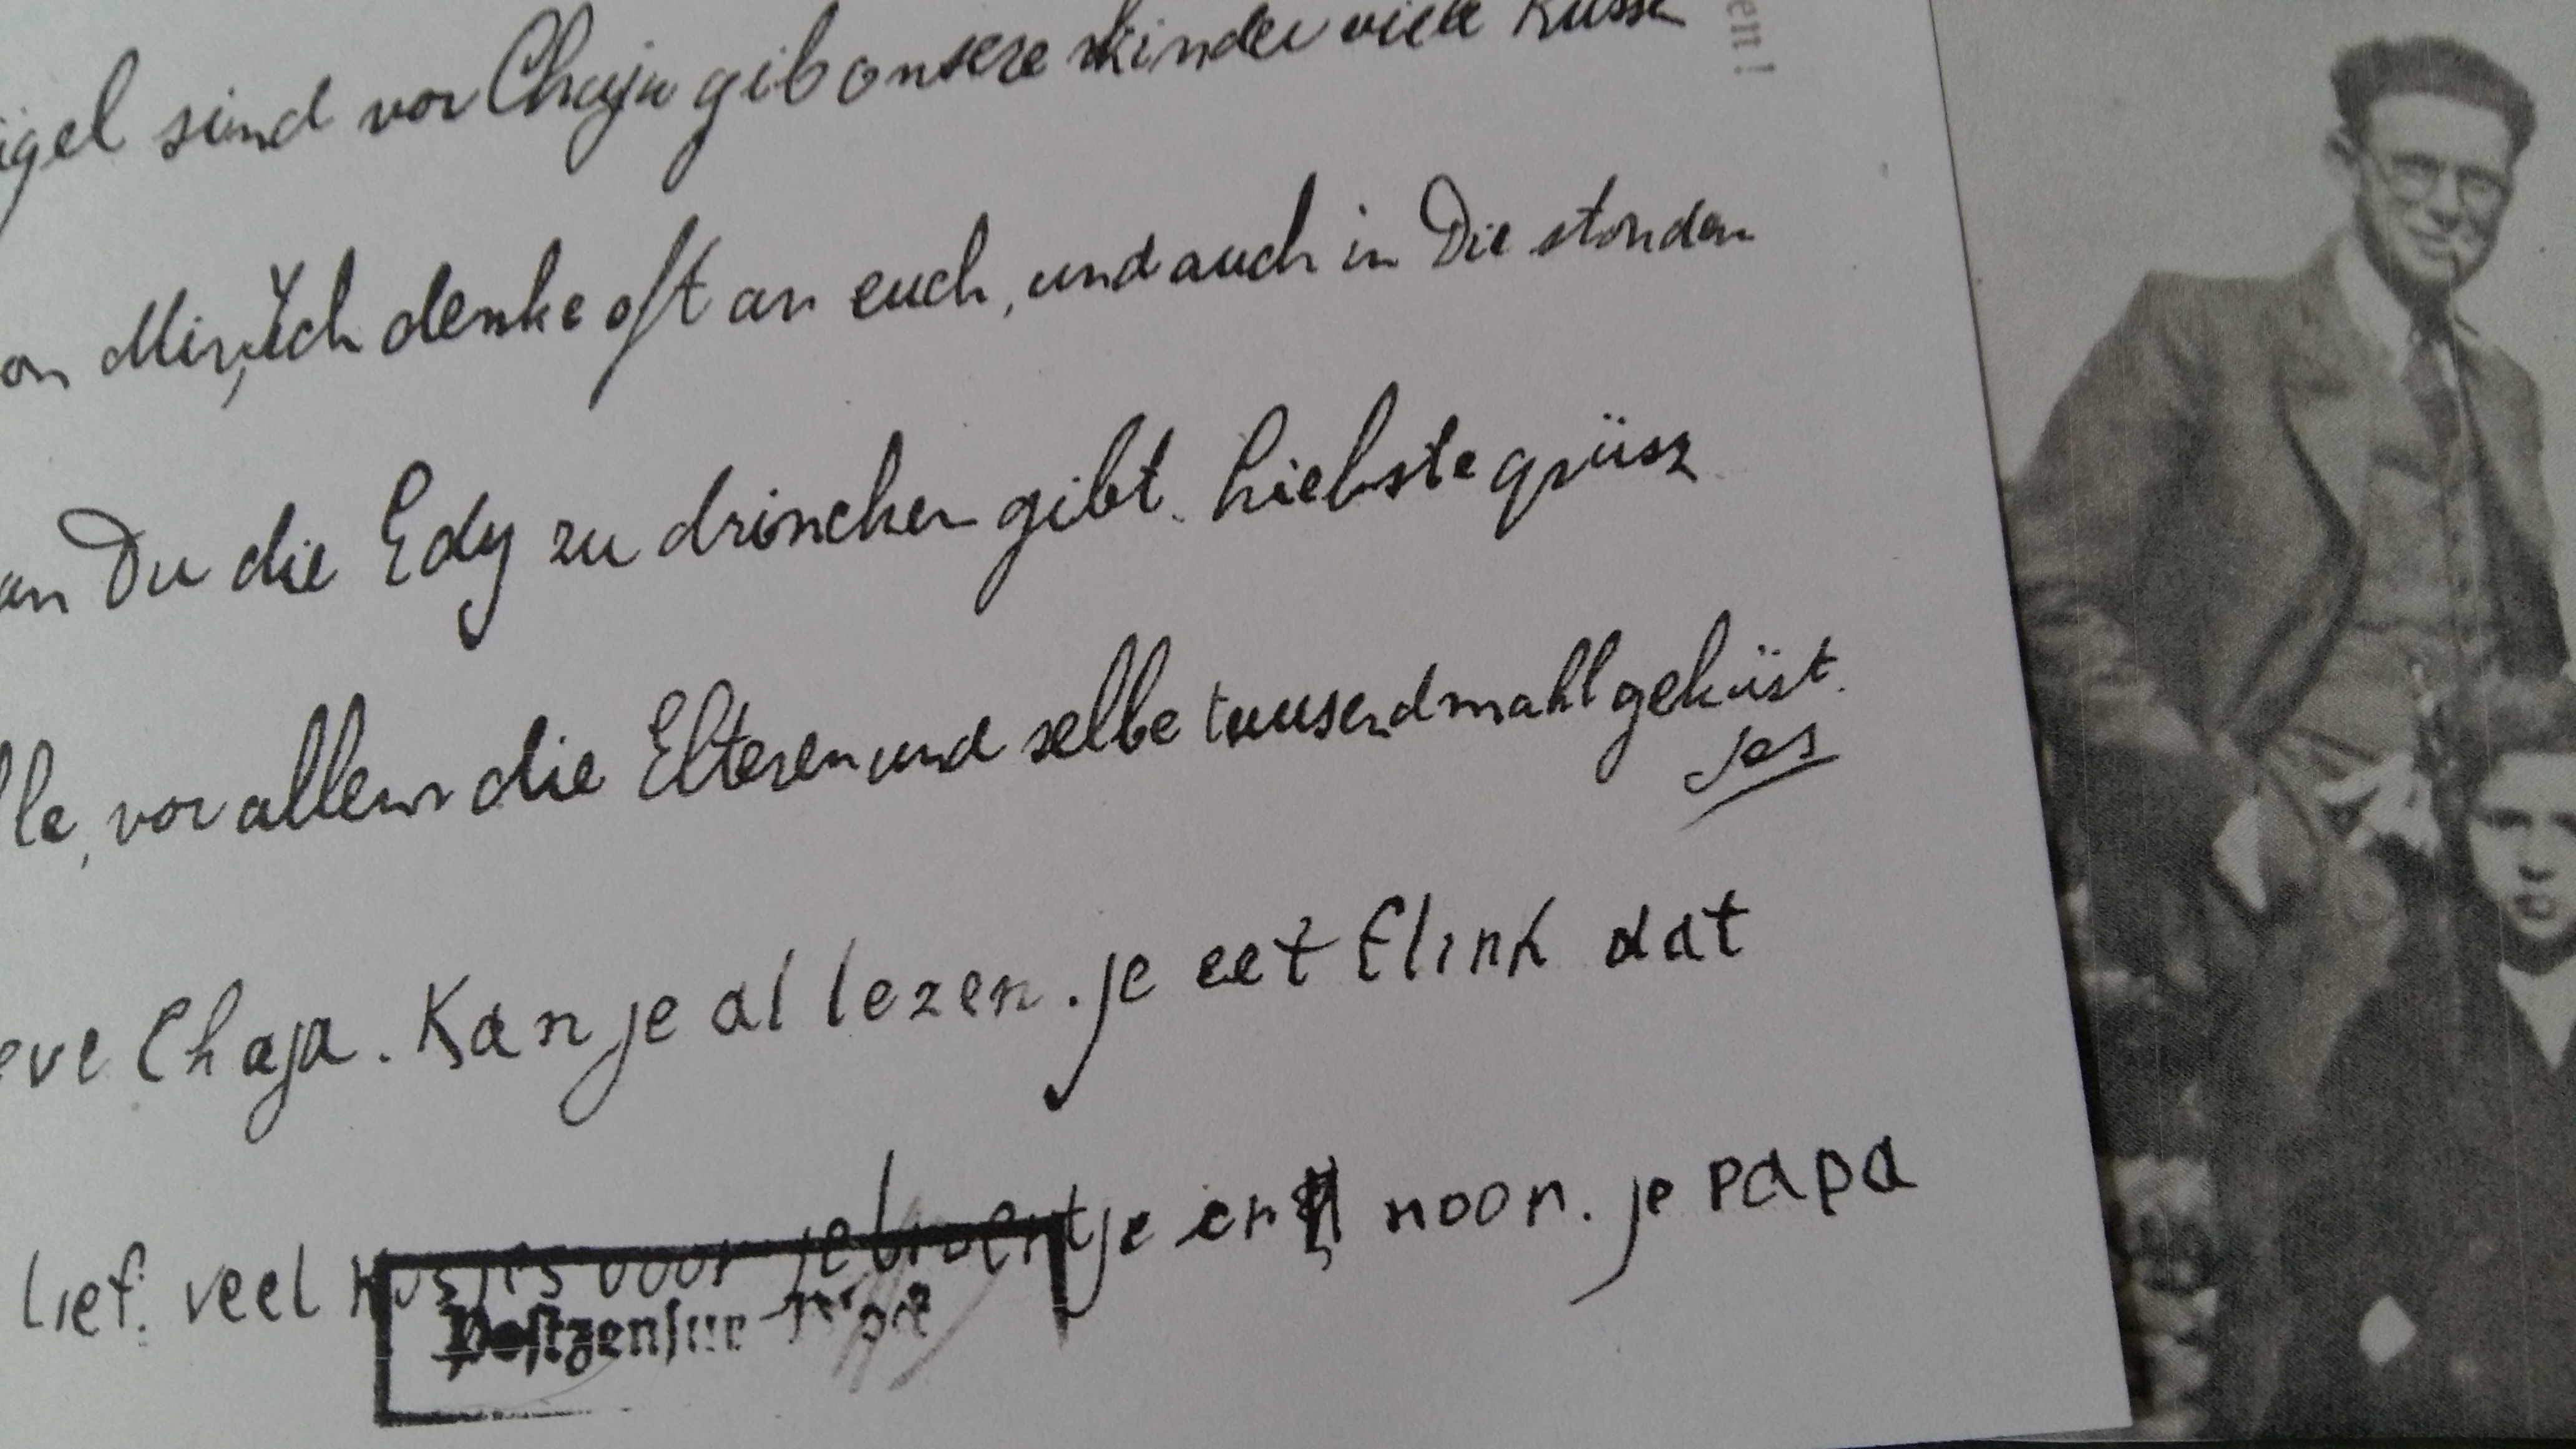 igel sind vor Chaja gib onsere kinder viele Küsse
en!
on Mir, Ich denke oft an euch, und auch in Die stonden
an Du die Edy zu drincken gibt. Liebste grüsz
lle, vor allem die Elteren und selbe tausendmahl geküst.
Jos
eve Chaja. Kan je al lezen. je eet flink dat
lief. veel kusjes voor je broertje en noon. je papa
Postzensur